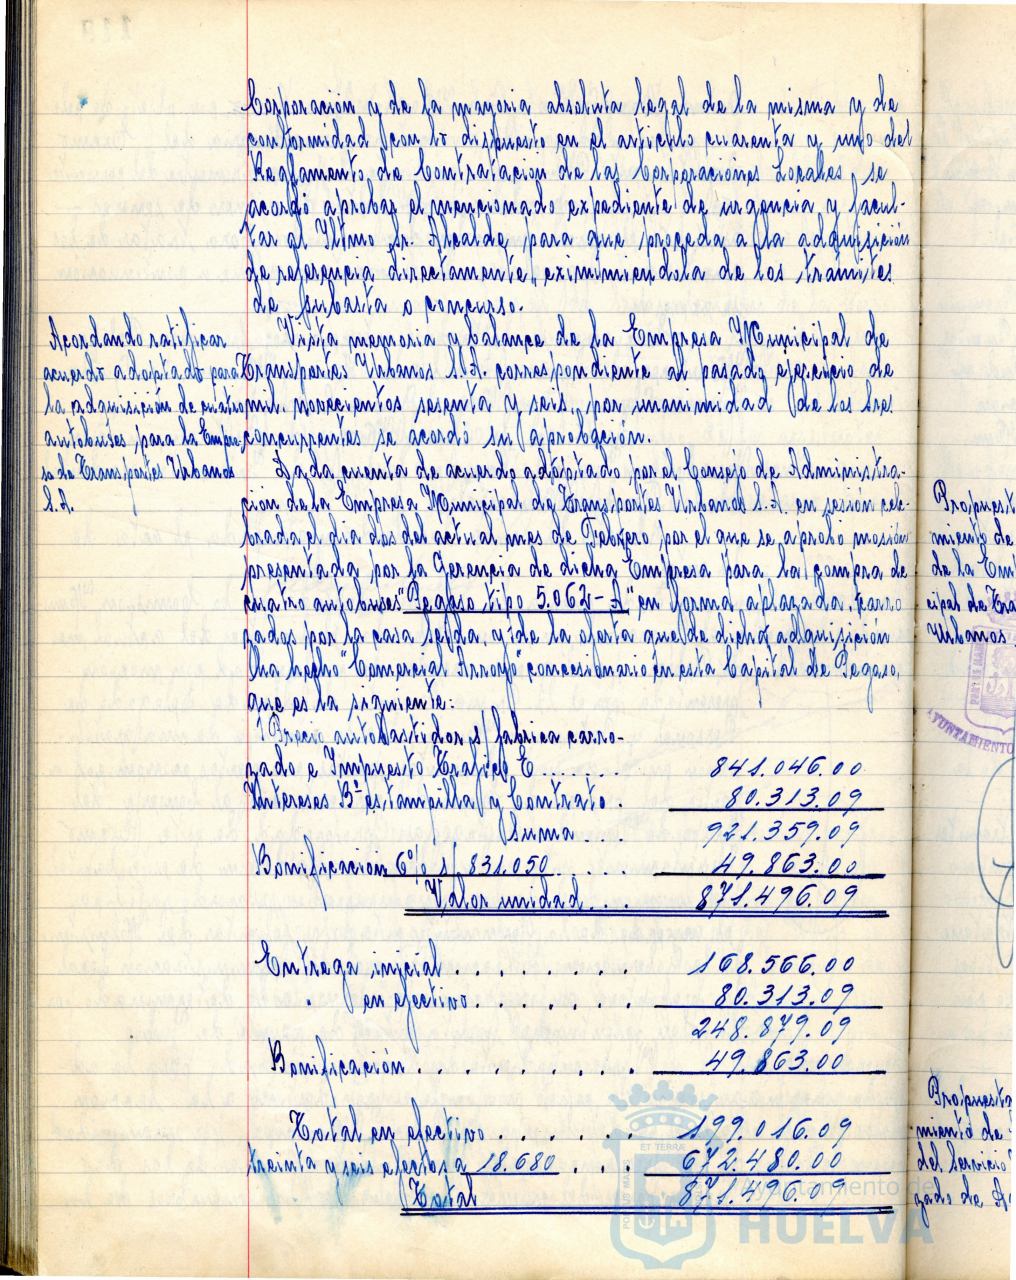 Corporación y de la mayoria absoluta legal de la misma y de
conformidad con lo dispuesto en el artículo cuarenta y uno del
Reglamento de Contratación de las Corporaciones Locales se
acordó aprobar el mencionado expediente de urgencia y facul-
tar al Iltmo Sr. Alcalde para que proceda a la adquisición
de referencia directamente, eximiendola de los trámites
de subasta o concurso.
Acordando ratificar
acuerdo adoptado para
la adquisición de cuatro
autobuses para la Empre-
sa de Transportes Urbanos
S.A.
Vista memoria y balance de la Empresa Municipal de
Transportes Urbanos S.A. correspondiente al pasado ejercicio de
mil novecientos sesenta y seis, por unanimidad de los Sres.
concurrentes se acordó su aprobación.
Dada cuenta de acuerdo adoptado por el Consejo de Administra-
ción de la Empresa Municipal de Transportes Urbanos S.A. en sesión cele-
brada el dia dos del actual mes de Febrero por el que se aprobo mosión
presentada por la Gerencia de dicha Empresa para la compra de
cuatro autobuses "Pegaso tipo 5.062-A" en forma aplazada, carro
zados por la casa Seida, y de la oferta que de dicha adquisición
ha hecho "Comercial Arroyo" concesionario en esta Capital de Pegaso,
que es la siguiente:
Precio autobastidor s/ fabrica carro-
zado e Impuesto Trafico E....... 841.046.00
Intereses Bº estampilla y Contrato.. 80.313.09
Suma.... 921.359.09
Bonificación 6% s/ 831.050..... 49.863.00
Valor unidad... 871.496.09
Entrega inicial........ 168.566.00
en efectivo....... 80.313.09
248.879.09
Bonificación......... 49.863.00
Total en efectivo..... 199.016.09
treinta y seis efectos a 18.680.... 672.480.00
Total 871.496.09
Propuest
miento de
de la Em
cipal de Tra
Urbanos
AYUNTAMIENTO
Propuesta
miento de
del Servicio
zado de A
ET TERRA
Ayuntamiento de
HUELVA